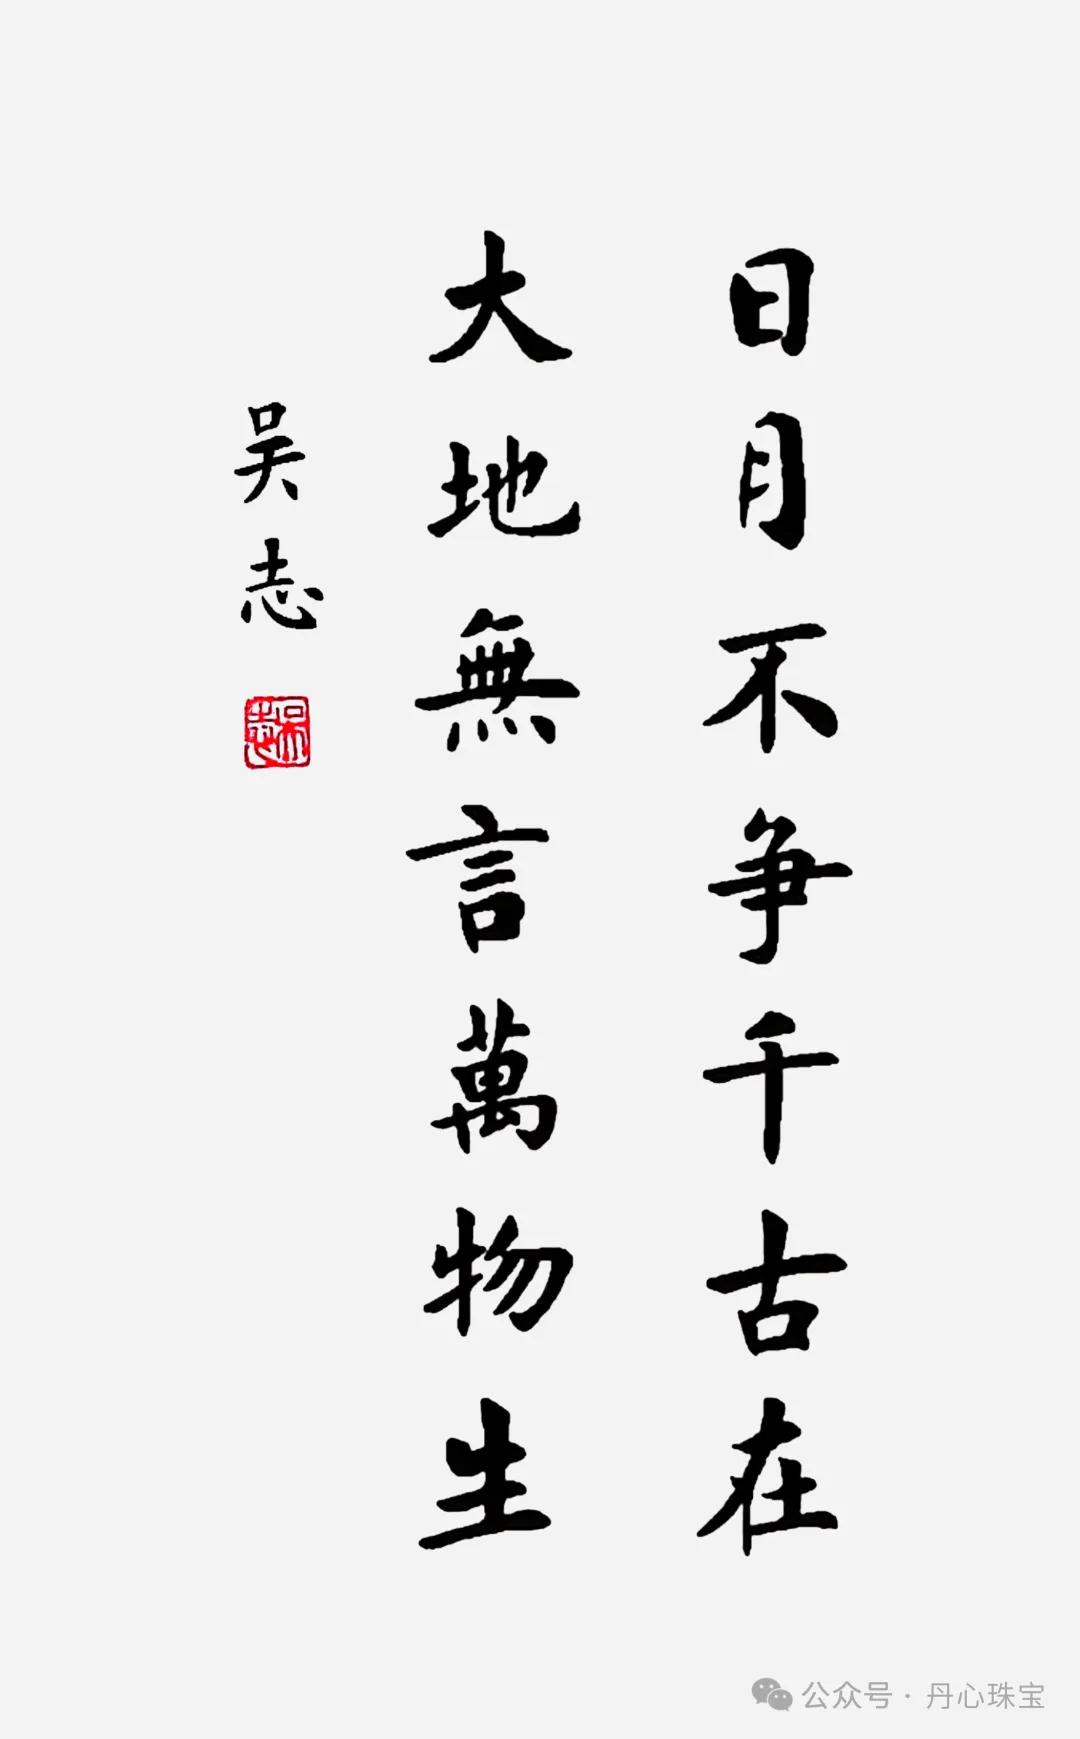 日月不争千古在
大地無言萬物生
吴志
吴志
公众号 · 丹心珠宝